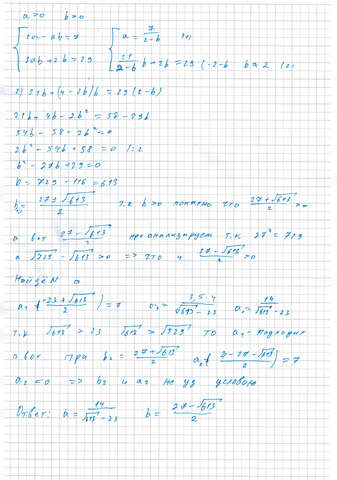 a>0 b>0
{ 2a - ab = 7 { a = 7/(2-b) (1)
3ab + 2b = 29 21/(2-b) b + 2b = 29 (·2-b b≠2 (2)
2) 21b + (4-2b)b = 29(2-b)
21b + 4b - 2b² = 58 - 29b
54b - 58 - 2b² = 0
2b² - 54b + 58 = 0 |:2
b² - 27b + 29 = 0
D = 729 - 116 = 613
b₁,₂ = (27±√613)/2 т.к b>0 понятно что (27+√613)/2 >0
а вот (27-√613)/2 проанализируем т.к. 27² = 729
а √729 - √613 > 0 => что и (27-√613)/2 >0
Найдём a
a₁ ((-23+√613)/2) = 7 a₁ = 3,5·4/(√613-23) a₁ = 14/(√613-23)
т.к √613 > 23 √613 > √529 то a₁ - подходит
а вот при b₂ = (27+√613)/2 a₂((4-27-√613)/2) = 7
a₂ <0 => b₂ и a₂ не уд условию
Ответ: a = 14/(√613-23) b = (27-√613)/2